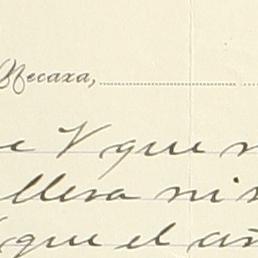 Necaxa,
e V que n
lleva ni s
que el añ